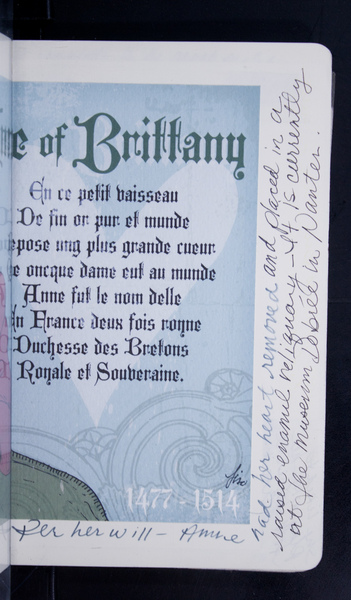 e of Brittany
En ce petit vaisseau
De fin or pur et munde
epose ung plus grande cueur
e oncque dame eut au munde
Anne fut le nom delle
n France deux fois royne
Duchesse des Bretons
Royale et Souveraine.
1477 - 1514
Per her will - Anne
had her heart removed and placed in a
raised enamel reliquary - It is currently
at the museum Dobrée in Nantes.